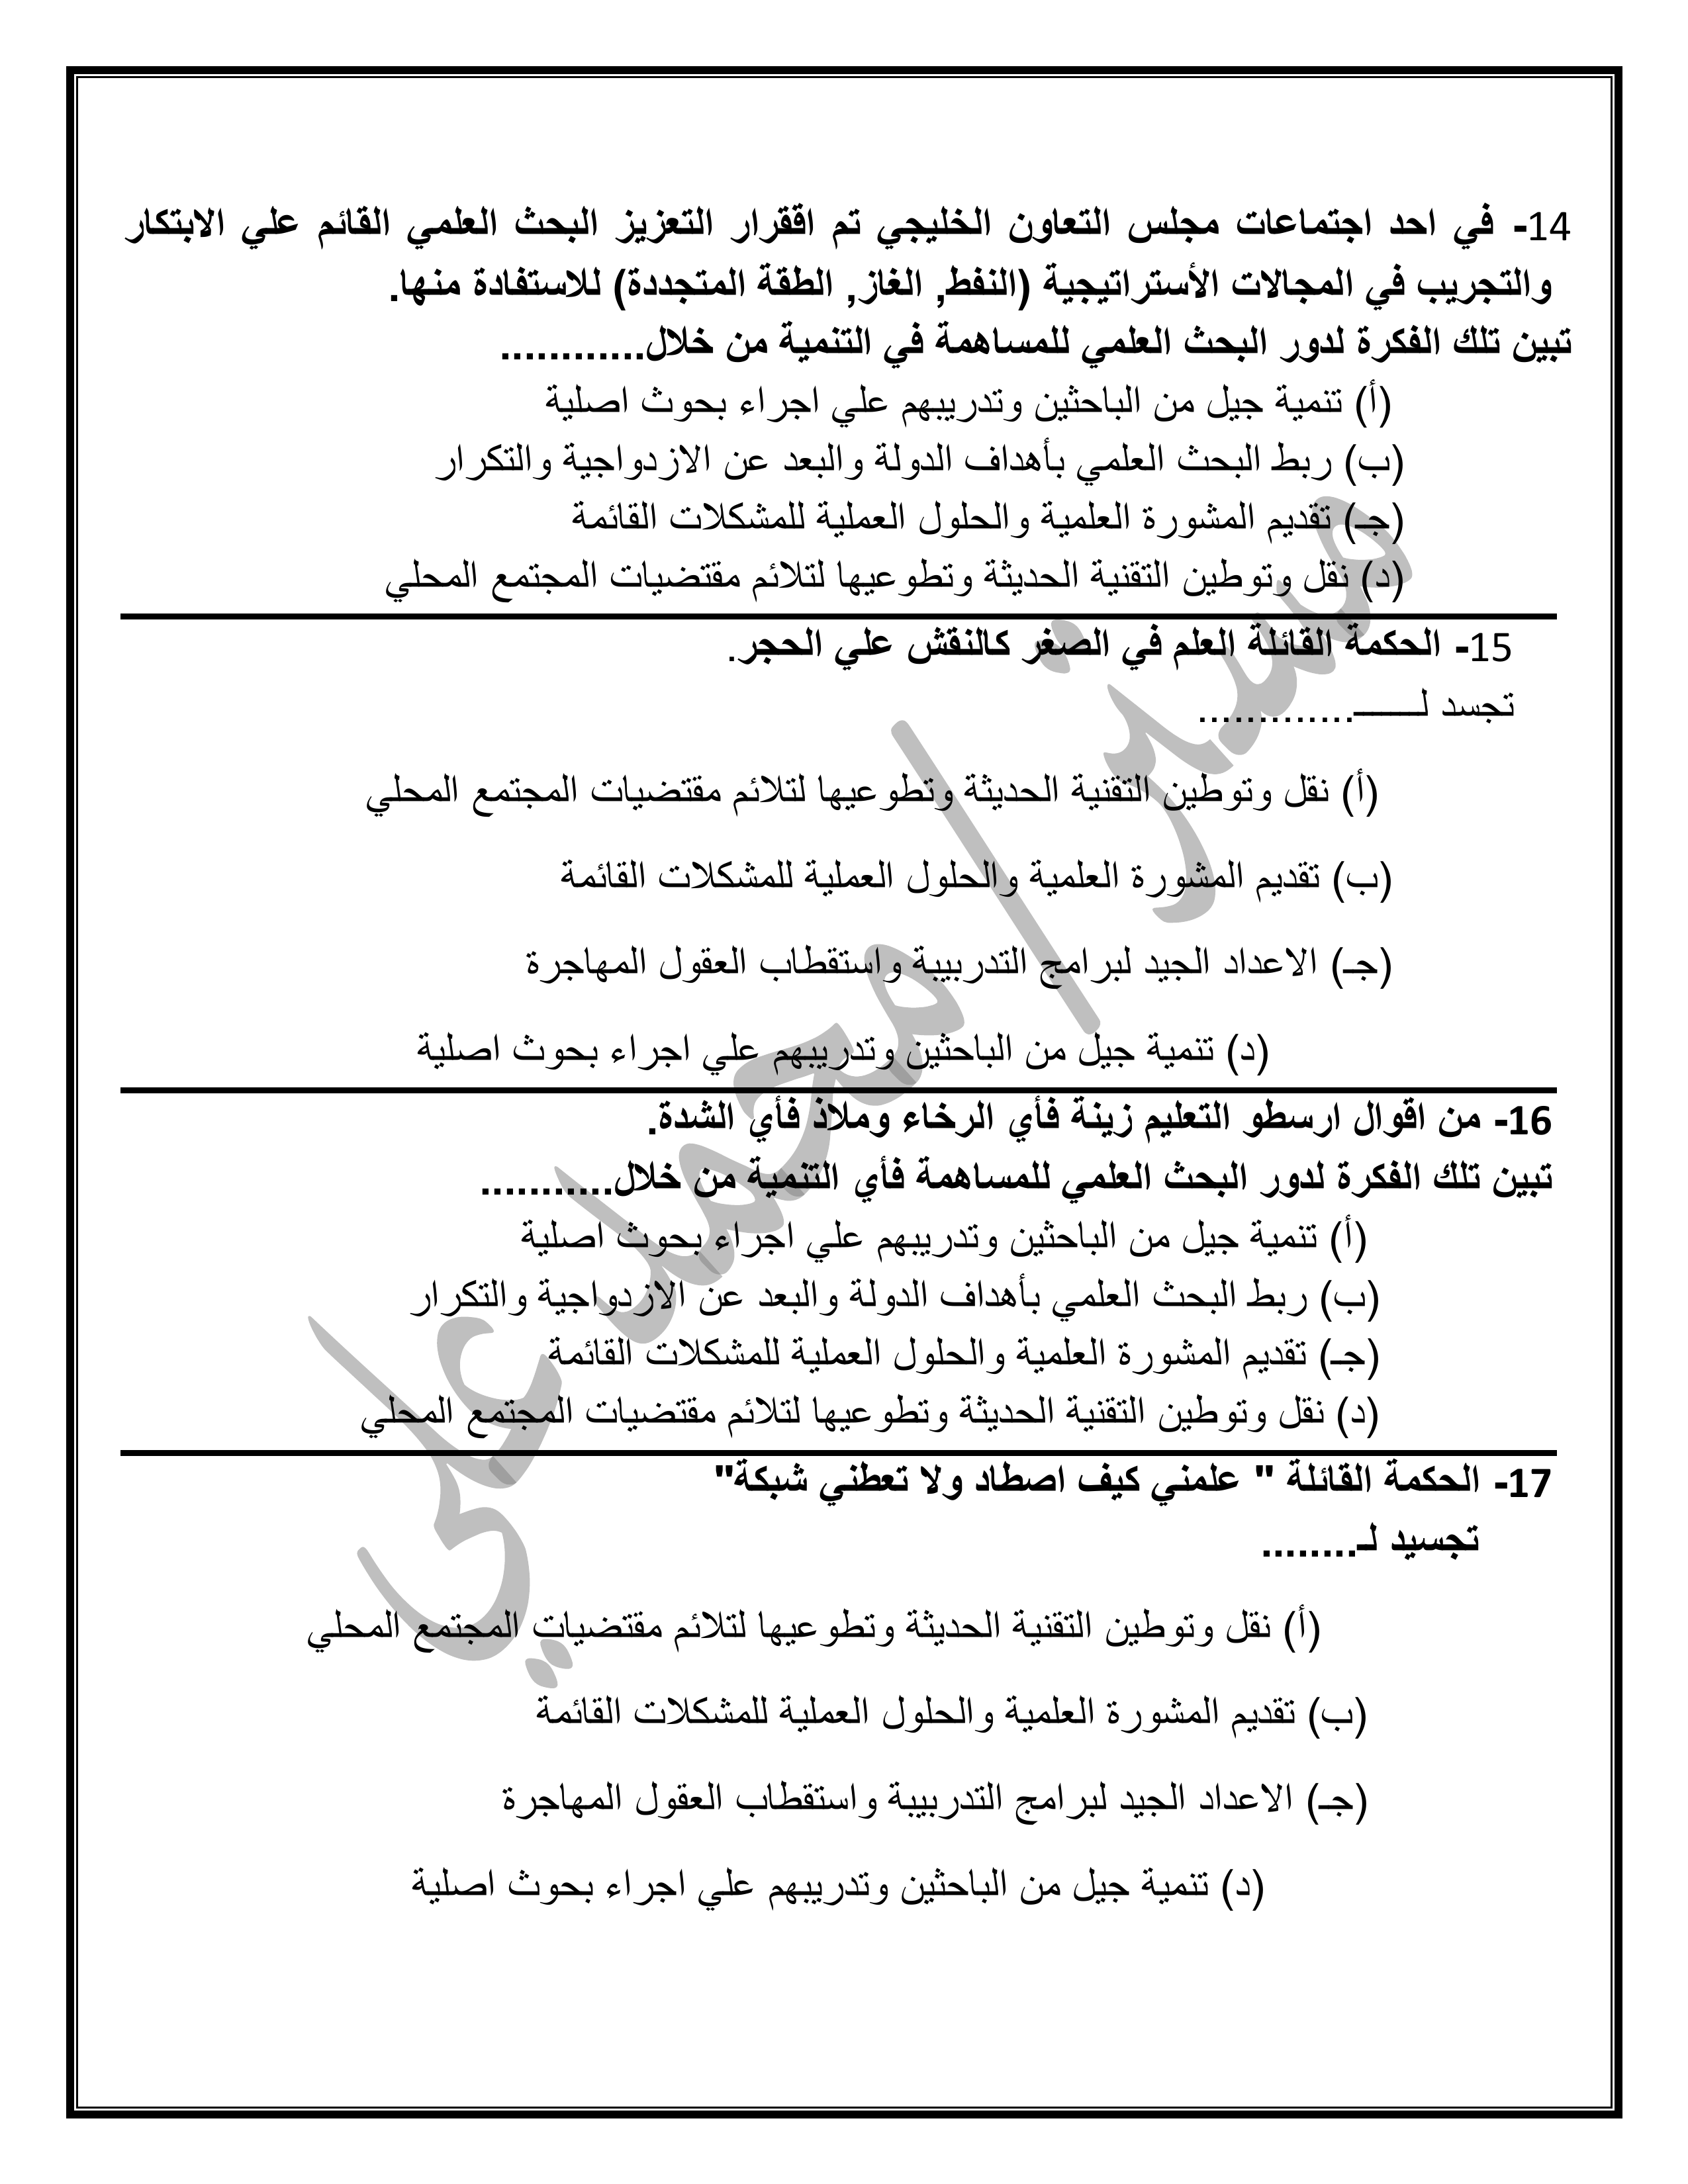 14- في احد اجتماعات مجلس التعاون الخليجي تم اققرار التعزيز البحث العلمي القائم علي الابتكار
والتجريب في المجالات الأستراتيجية (النفط, الغاز, الطقة المتجددة) للاستفادة منها.
تبين تلك الفكرة لدور البحث العلمي للمساهمة في التنمية من خلال............
(أ) تنمية جيل من الباحثين وتدريبهم علي اجراء بحوث اصلية
(ب) ربط البحث العلمي بأهداف الدولة والبعد عن الازدواجية والتكرار
(جـ) تقديم المشورة العلمية والحلول العملية للمشكلات القائمة
(د) نقل وتوطين التقنية الحديثة وتطوعيها لتلائم مقتضيات المجتمع المحلي
15- الحكمة القائلة العلم في الصغر كالنقش علي الحجر.
تجسد لـــــــ.............
(أ) نقل وتوطين التقنية الحديثة وتطوعيها لتلائم مقتضيات المجتمع المحلي
(ب) تقديم المشورة العلمية والحلول العملية للمشكلات القائمة
(جـ) الاعداد الجيد لبرامج التدربيبة واستقطاب العقول المهاجرة
(د) تنمية جيل من الباحثين وتدريبهم علي اجراء بحوث اصلية
16- من اقوال ارسطو التعليم زينة فأي الرخاء وملاذ فأي الشدة.
تبين تلك الفكرة لدور البحث العلمي للمساهمة فأي التنمية من خلال...........
(أ) تنمية جيل من الباحثين وتدريبهم علي اجراء بحوث اصلية
(ب) ربط البحث العلمي بأهداف الدولة والبعد عن الازدواجية والتكرار
(جـ) تقديم المشورة العلمية والحلول العملية للمشكلات القائمة
(د) نقل وتوطين التقنية الحديثة وتطوعيها لتلائم مقتضيات المجتمع المحلي
17- الحكمة القائلة " علمني كيف اصطاد ولا تعطني شبكة"
تجسيد لـ........
(أ) نقل وتوطين التقنية الحديثة وتطوعيها لتلائم مقتضيات المجتمع المحلي
(ب) تقديم المشورة العلمية والحلول العملية للمشكلات القائمة
(جـ) الاعداد الجيد لبرامج التدربيبة واستقطاب العقول المهاجرة
(د) تنمية جيل من الباحثين وتدريبهم علي اجراء بحوث اصلية
مستر/محمد علي